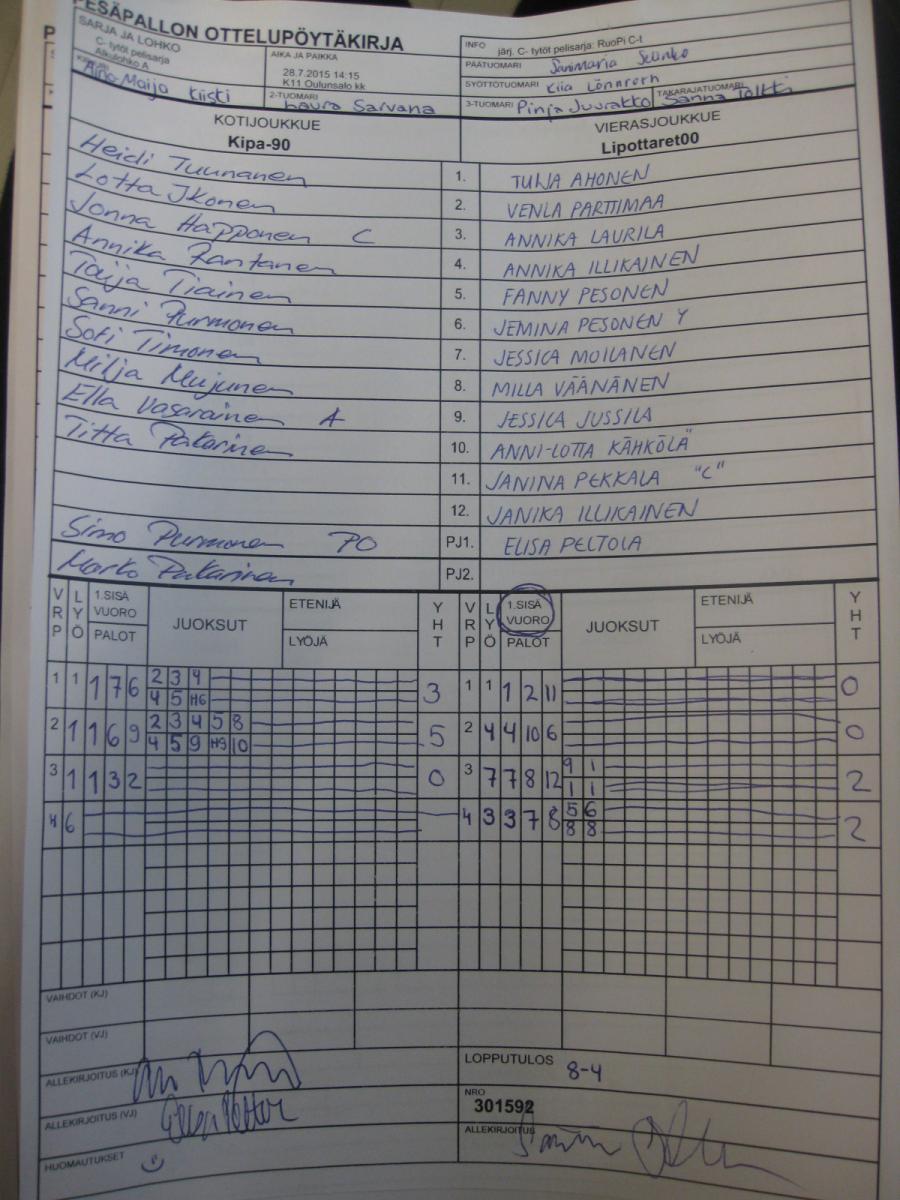 PESÄPALLON OTTELUPÖYTÄKIRJA
SARJA JA LOHKO
C- tytöt pelisarja
Alkulohko A
AIKA JA PAIKKA
28.7.2015 14:15
K11 Oulunsalo kk
INFO järj. C- tytöt pelisarja: RuoPi C-t
PÄÄTUOMARI
SYÖTTÖTUOMARI Kiia Lönnroth
KIRJURI Aino-Maija Kiisti
2-TUOMARI Laura Sarvana
3-TUOMARI Pinja Juurakko
TAKARAJATUOMARI Sanna Toltti
KOTIJOUKKUE
Kipa-90
VIERASJOUKKUE
Lipottaret00
Heidi Tuunanen 1. TUIJA AHONEN
Lotta Ikonen 2. VENLA PARTIMAA
Jonna Happonen C 3. ANNIKA LAURILA
Annika Rantanen 4. ANNIKA ILLIKAINEN
Taija Tiainen 5. FANNY PESONEN
Sanni Purmonen 6. JEMINA PESONEN Y
Sofi Timonen 7. JESSICA MOILANEN
Milja Mujunen 8. MILLA VÄÄNÄNEN
Ella Vasarainen A 9. JESSICA JUSSILA
Titta Pakarinen 10. ANNI-LOTTA KÄHKÖLÄ
11. JANINA PEKKALA "C"
12. JANIKA ILLIKAINEN
Simo Purmonen PO PJ1. ELISA PELTOLA
Marko Pakarinen PJ2.
VRP LYÖ 1.SISÄ VUORO PALOT JUOKSUT ETENIJÄ LYÖJÄ YHT VRP LYÖ 1.SISÄ VUORO PALOT JUOKSUT ETENIJÄ LYÖJÄ YHT
1 1 1 7 6 2 3 4 3 1 1 1 2 11 0
4 5 H6
2 1 1 6 9 2 3 4 5 8 5 2 4 4 10 6 0
4 5 9 H9 10
3 1 1 3 2 0 3 7 7 8 12 9 1 2
1 1
4 6 4 3 3 7 8 5 6 2
8 8
VAIHDOT (KJ)
VAIHDOT (VJ)
ALLEKIRJOITUS (KJ)
LOPPUTULOS 8-4
ALLEKIRJOITUS (VJ)
NRO
301592
ALLEKIRJOITUS
HUOMAUTUKSET